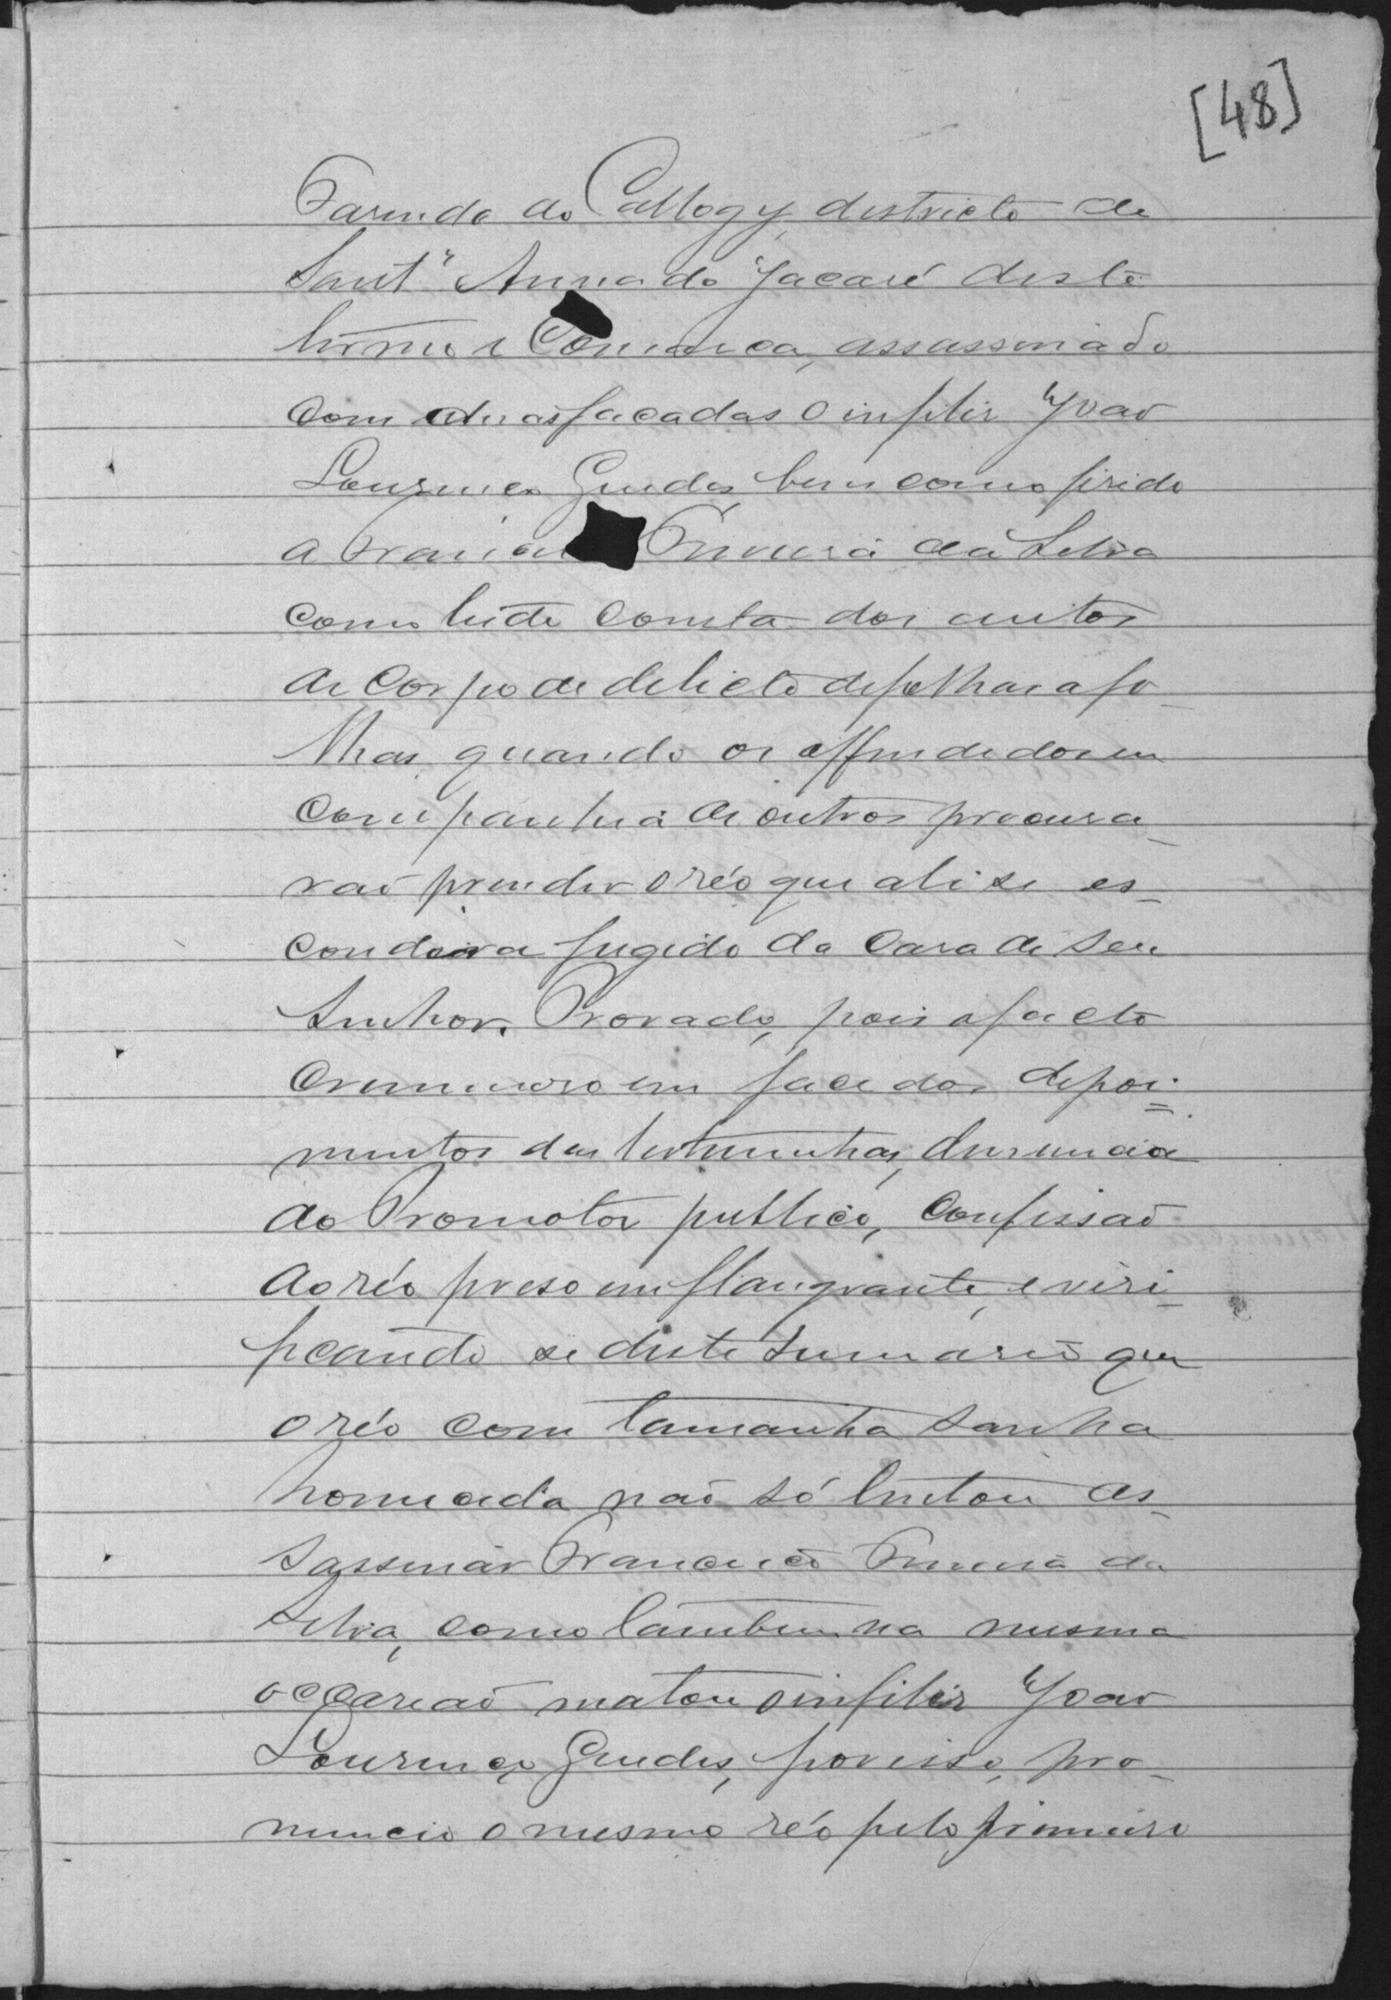 [48]
Fasenda do Callogy, districto de
Sant' Anna do Jacaré deste
termo e Comarca, assassinado
com duas facadas o infeliz João
Lourenço Guedes, bem como ferido
a Pereira da Silva
como tudo consta dos autos
de corpo de delicto de folhas a fo-
lhas quando os offendidos em
companhia de outros procura-
vão prender o réo que ali se es-
condera fugido da casa de seu
Senhor. Provado, pois o facto
criminoso em face dos depoi-
mentos das testemunhas, denuncia
do Promotor publico, confissão
do réo preso em flangrante, e viri-
ficando se deste sumario que
o réo com tamanha sanha
homecida não só tentou as-
sassinar Francisco Pereira da
Silva, como tambem na mesma
occasião matou o infeliz João
Lourenço Guedes, por isso, pro-
nuncio o mesmo réo pelo primeiro